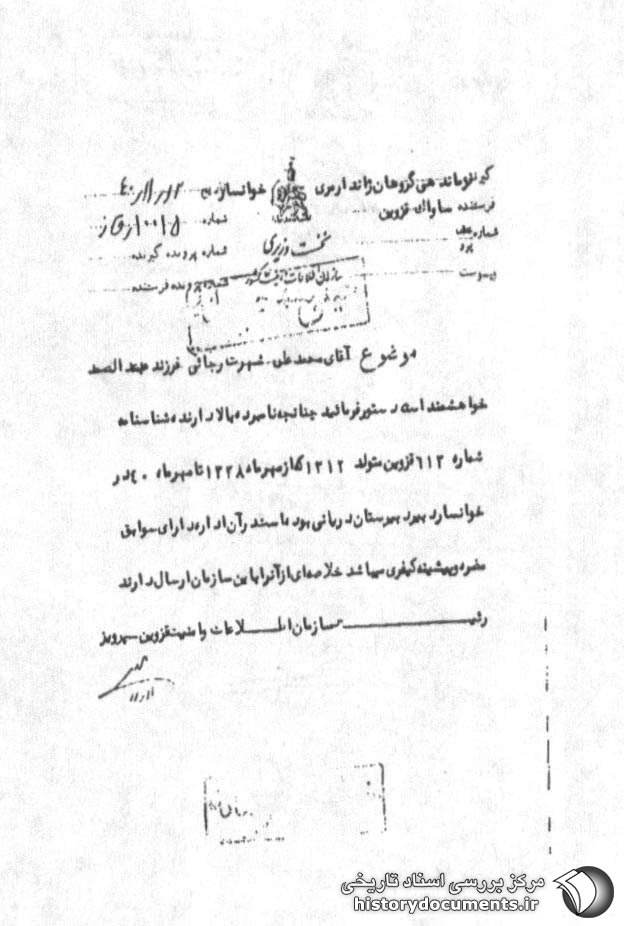 گیرنده فرماندهی گروهان ژاندارمری خوانسار
فرستنده ساواک قزوین
شماره
شماره
نخست وزیری
شماره پرونده گیرنده
پیوست
سازمان اطلاعات و امنیت کشور
شماره پرونده فرستنده
موضوع آقای محمد علی شهرت رجائی فرزند عبدالصمد
خواهشمند است دستور فرمائید چنانچه نامبرده بالا دارنده شناسنامه
شماره ٦١٣ قزوین متولد ١٣١٢ که از مهرماه ١٣٣٨ تا مهرماه ٤٠ در
خوانسار دبیر دبیرستان بوده است در آن اداره دارای سوابق
مضره و پیشینه کیفری میباشد خلاصه‌ای از آنرا باین سازمان ارسال دارند
رئیس سازمان اطلاعات و امنیت قزوین
مرکز بررسی اسناد تاریخی
historydocuments.ir